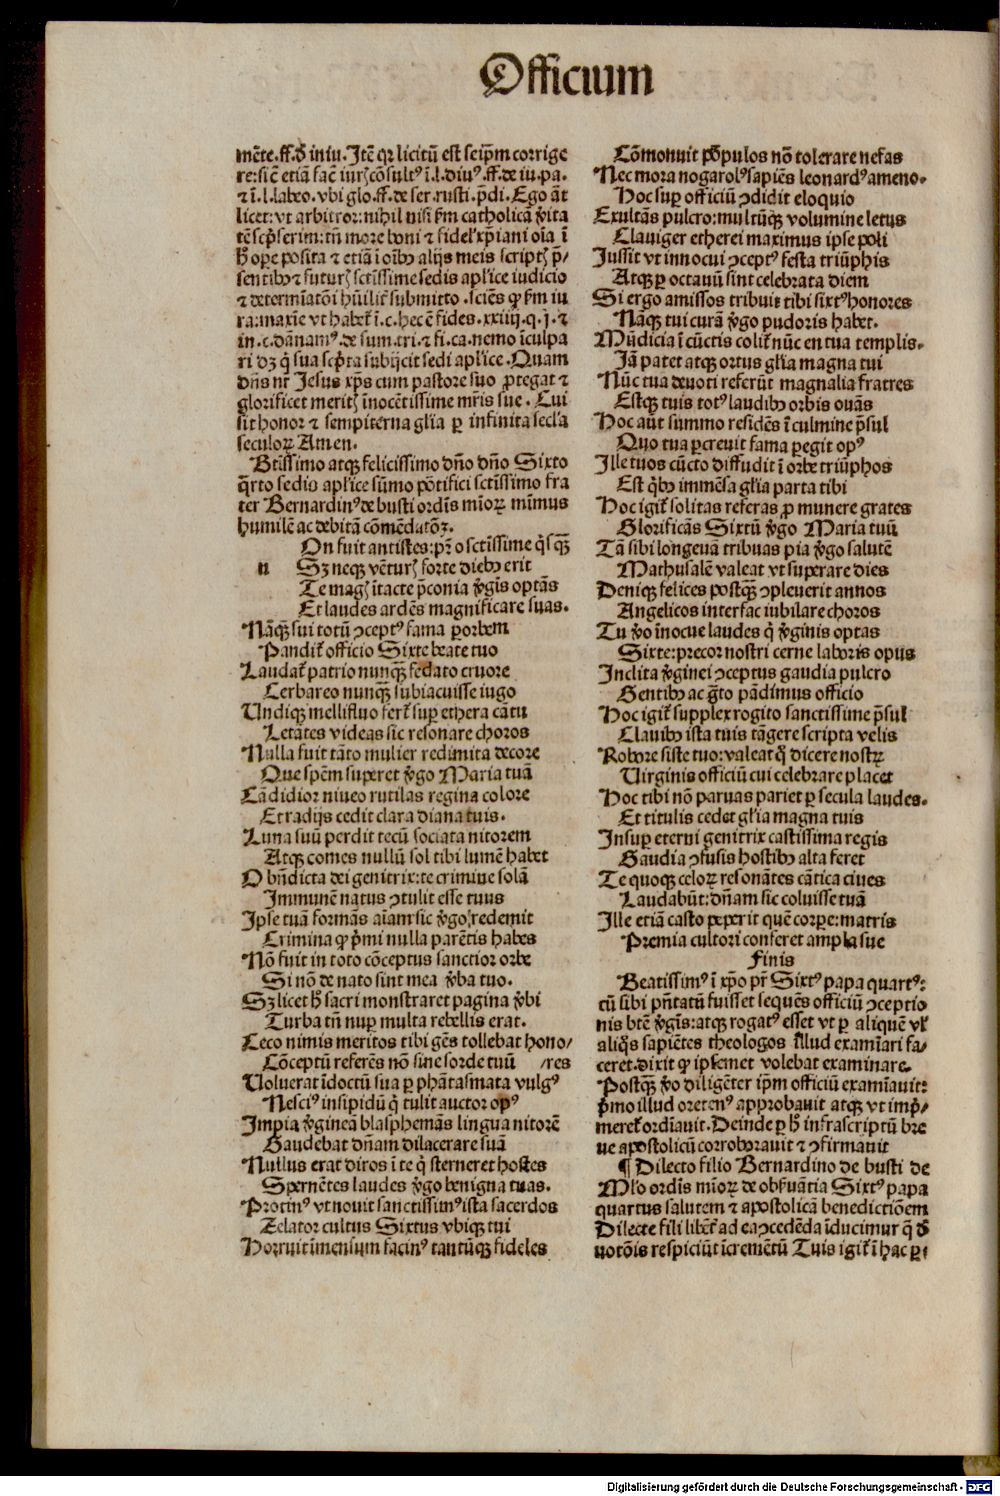 Officium
mēte.ff.ð iniu.Itē qr licitū est seip̄m corrige
re:sic̄ etiā fac̄ iurꝭcōsultꝰ ī.l.diuꝰ.ff.de iu.pa.
⁊ ī.l.labeo.vbi glo.ff.de ser.rusti.p̄di.Ego āt
licet:vt arbitror:nihil nisi ẜm catholicā v̄ita
tē scp̄serim:tn̄ more boni ⁊ fidel' xp̄iani oīa ī
h̄ oꝑe posita ⁊ etiā ī oībꝰ alijs meis scriptꝭ p̄/
sentibꝰ ⁊ futurꝭ sctīssime sedis apl'ice iudicio
⁊ determīatōi hūilit̄ submitto.sciēs ꝙ ẜm iu
ra:maxīe vt habet̄ ī.c.hec ē fides.xxiiij.q.j.⁊
in.c.dānamꝰ.de sum.tri.⁊ fi.ca.nemo īculpa
ri dꝫ q̄ sua scp̄ta subijcit sedi apl'ice.Quam
dn̄s nr̄ Jesus xp̄s cum pastore suo ꝓtegat ⁊
glorificet meritꝭ īnocētissime mr̄is sue. Cui
sit honor ⁊ sempiterna gl'ia ꝑ infinita secl'a
seculoꝝ Amen.
Btīssimo atqꝫ felicissimo dn̄o dn̄o Sixto
q̄rto sedis apl'ice sūmo pōtifici sctīssimo fra
ter Bernardinꝰ de busti ordīs mīoꝝ mīmus
humilē ac debitā cōmēdatōꝫ.
On fuit antistes:pꝫ o sctīssime q̄sq̄ꝫ
n Sꝫ neqꝫ vēturꝭ forte diebꝰ erit
Te magꝭ ītacte p̄conia v̄gīs optās
Et laudes ardēs magnificare suas.
Nāqꝫ sui totū ɔceptꝰ fama ꝑ orbem
Pandit̄ officio Sixte beate tuo
Laudat̄ patrio nunq̄ꝫ fedato cruore
Cerbareo nunq̄ꝫ subiacuisse iugo
Undiqꝫ mellifluo fert̄ suꝑ ethera cātu
Letātes videas sic resonare choros
Nulla fuit tāto mulier redimita decore
Que spēm superet v̄go Maria tuā
Cādidior niueo rutilas regina colore
Et radijs cedit clara diana tuis.
Luna suū perdit tecū sociata nitorem
Atqꝫ comes nullū sol tibi lumē habet
O bn̄dicta dei genitrix:te crimine solā
Immunē natus ɔtulit esse tuus
Ipse tuā formās aīam sic v̄go;redemit
Crimina ꝙ p̄mi nulla parētis habes
Nō fuit in toto cōceptus sanctior orbe
Si nō de nato sint mea v̄ba tuo.
Sꝫ licet h̄ sacri monstraret pagina v̄bi
Turba tn̄ nuꝑ multa rebellis erat.
Ceco nimis meritos tibi gēs tollebat hono/
Cōceptū referēs nō sine sorde tuū /res
Voluerat īdoctū sua ꝑ phātasmata vulgꝰ
Nesciꝰ insipidū q̄ tulit auctor opꝰ
Impia v̄gineā blasphemās lingua nitorē
Gaudebat dn̄am dilacerare suā
Nullus erat diros ī te q̄ sterneret hostes
Spernētes laudes v̄go benigna tuas.
Protinꝰ vt nouit sanctissimꝰ ista sacerdos
Zelator cultus Sixtus vbiqꝫ tui
Horruit īmensum facinꝰ tantūqꝫ fideles
Cōmonuit pōpulos nō tolerare nefas
Nec mora nogarolꝰ sapiēs leonardꝰ ameno.
Hoc suꝑ officiū ɔdidit eloquio
Exultās pulcro:multūqꝫ volumine letus
Clauiger etherei maximus ipse poli
Jussit vt innocui ɔceptꝰ festa triūphis
Atqꝫ ꝑ octauū sint celebrata diem
Si ergo amissos tribuit tibi sixtꝰ honores
Nāqꝫ tui curā v̄go pudoris habet.
Mūdicia ī cūctis colit̄ nūc en tua templis.
Jā patet atqꝫ ortus gl'ia magna tui
Nūc tua deuoti referūt magnalia fratres
Estqꝫ tuis totꝰ laudibꝰ orbis ouās
Hoc aūt summo residēs ī culmine p̄sul
Quo tua ꝑcreuit fama ꝑegit opꝰ
Ille tuos cūcto diffudit ī orbe triūphos
Est q̄bꝰ immēsa gl'ia parta tibi
Hoc igit̄ solitas referas ꝓ munere grates
Glorificās Sixtū v̄go Maria tuū
Tā sibi longeuā tribuas pia v̄go salutē
Mathusalē valeat vt superare dies
Deniqꝫ felices postq̄ꝫ ɔpleuerit annos
Angelicos interfac iubilare choros
Tu v̄o īnocue laudes q̄ v̄ginis optas
Sixte:precor nostri cerne laboris opus
Inclita v̄ginei ɔceptus gaudia pulcro
Gentibꝰ ac ḡto pādimus officio
Hoc igit̄ supplex rogito sanctissime p̄sul
Clauibꝰ ista tuis tāgere scripta velis
Robore siste tuo:valeat q̄ dicere nostꝝ
Uirginis officiū cui celebrare placet
Hoc tibi nō paruas pariet ꝑ secula laudes.
Et titulis cedet gl'ia magna tuis
Insuꝑ eterni genitrix castissima regis
Gaudia ɔfusis hostibꝰ alta feret
Te quoqꝫ celoꝝ resonātes cātica ciues
Laudabūt:dn̄am sic coluisse tuā
Ille etiā casto peperit quē corpe:matris
Premia cultori conferet ampla sue
Finis
Beatissimꝰ ī xp̄o pr̄ Sixtꝰ papa quartꝰ:
cū sibi pn̄tatū fuisset sequēs officiū ɔceptio
nis btē v̄gīs:atqꝫ rogatꝰ esset vt ꝑ aliquē vl'
aliq̄s sapiētes theologos illud examīari fa/
ceret.dixit ꝙ ipsemet volebat examinare.
Postq̄ꝫ v̄o diligēter ip̄m officiū examīauit:
p̄mo illud oretenꝰ approbauit atqꝫ vt imp̄/
meret̄ ordīauit.Deinde ꝑ h̄ infrascriptū bre
ue apostolicū corroborauit ⁊ ɔfirmauit
¶ Dilecto filio Bernardino de busti de
Ml'o ordīs mīoꝝ de obseruātia Sixtꝰ papa
quartus salutem ⁊ apostolicā benedictiōem
Dilecte fili libēt̄ ad ea ɔcedēda īducimur q̄ ð
uotōis respiciūt īcremētū Tuis igit̄ ī hac ꝑ/